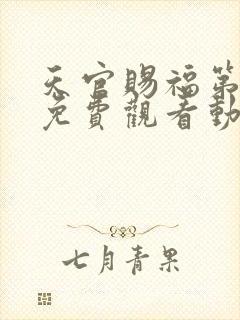 天官賜福第
免費觀看動
七月青果